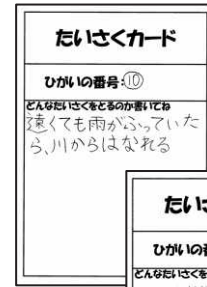 たいさくカード
ひがいの番号:⑩
どんなたいさくをとるのか書いてね
遠くても雨がふっていた
ら、川からはなれる
たい
ひがいの
どんなたいさくを